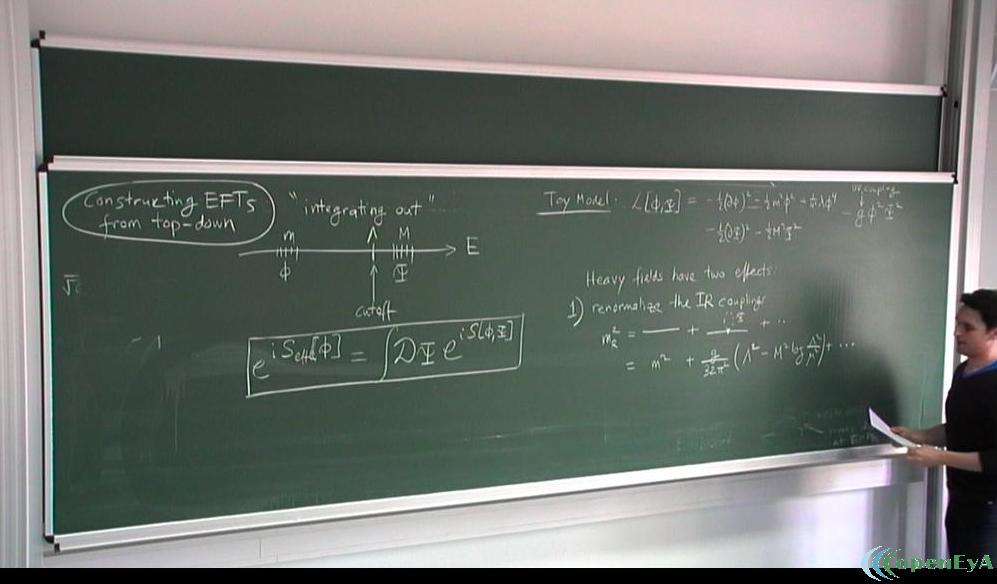 Constructing EFTs
from top-down
"integrating out"
m M
E
ϕ Ψ
cutoff
e^{iS_{eff}[ϕ]} = ∫DΨ e^{iS[ϕ,Ψ]}
Toy Model: L[ϕ,Ψ] = -½(∂ϕ)² - ½m²ϕ² + 1/4! λϕ⁴ - gϕ²Ψ²
coupling
-½(∂Ψ)² - ½M²Ψ²
Heavy fields have two effects:
1) renormalize the IR couplings
m_R² = — + — + ...
Ψ
= m² + g/32π² (Λ² - M² log Λ²/μ²) + ...
openEyA